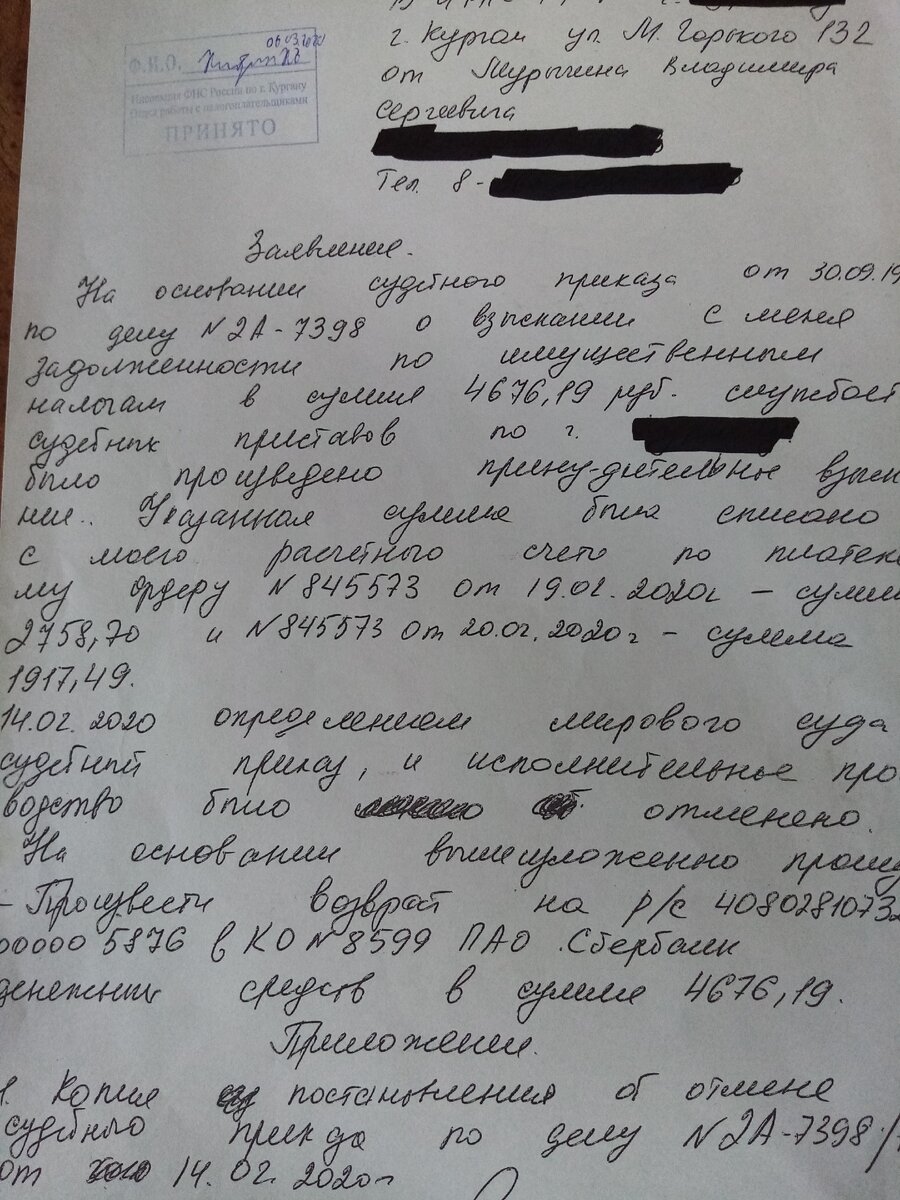 06.03.2020
Ф.И.О.
Инспекция ФНС России по г. Кургану
Отдел работы с налогоплательщиками
ПРИНЯТО
г. Курган ул. М. Горького 132
от Мурычина Владимира
Сергеевича
Тел. 8-
Заявление.
На основании судебного приказа от 30.09.19
по делу N2А-7398 о взыскании с меня
задолженности по имущественным
налогам в сумме 4676,19 руб. службой
судебных приставов по г.
было произведено принудительное взыск
ние. Указанная сумма была списано
с моего расчётного счето по платежно
му ордеру N845573 от 19.02.2020г - сумм
2758,70 и N845573 от 20.02.2020г - сумма
1917,49.
14.02.2020 определением мирового суда
судебный приказ, и исполнительное про
водство было отменено.
На основании вышеизложенно прошу
- Произвести возврат на р/с 4080281073
00000 5876 в КО N8599 ПАО Сбербанк
денежных средств в сумме 4676,19.
Приложении.
1. Копия постановления об отмене
судебного приказа по делу N2А-7398/
от 14.02.2020г